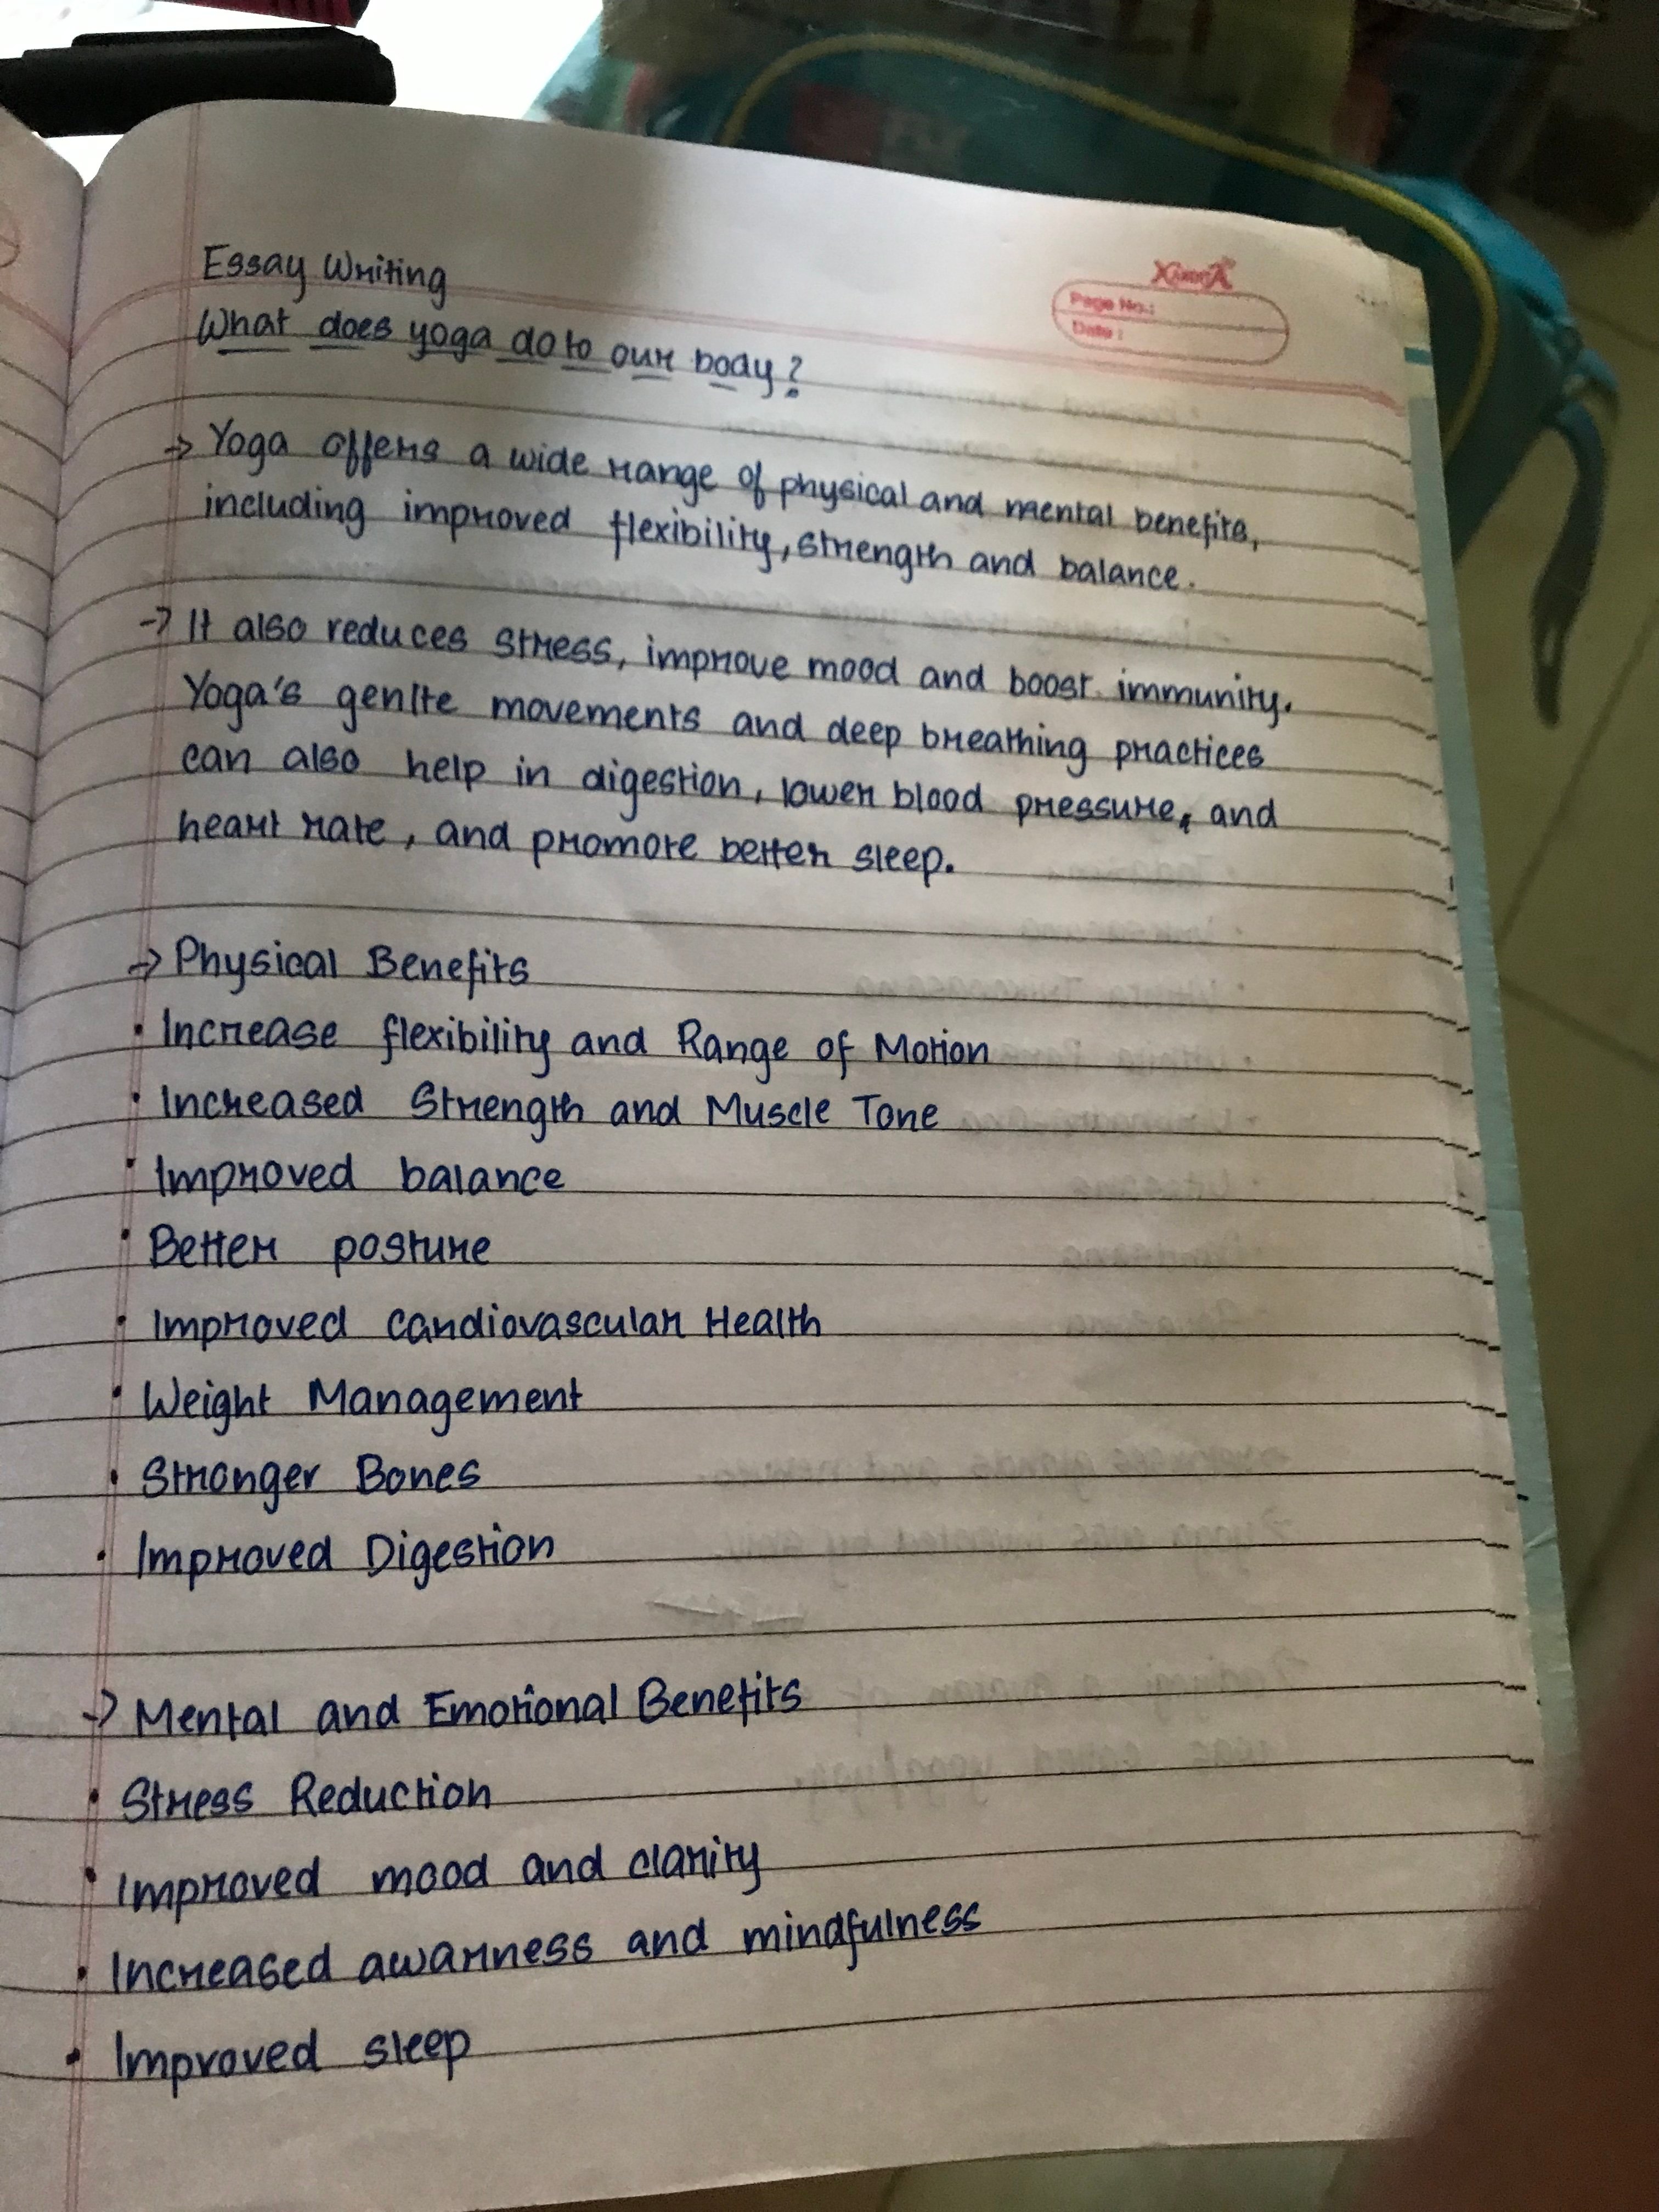 Essay Writing
What does yoga do to our body?
XAMERA
Page No.:
Date:
→ Yoga offers a wide range of physical and mental benefits,
including improved flexibility, strength and balance.
→ It also reduces stress, improve mood and boost immunity.
Yoga's genlte movements and deep breathing practices
can also help in digestion, lower blood pressure, and
heart rate, and promote better sleep.
→ Physical Benefits
• Increase flexibility and Range of Motion
• Increased Strength and Muscle Tone
• Improved balance
• Better posture
• Improved cardiovascular Health
• Weight Management
• Stronger Bones
• Improved Digestion
→ Mental and Emotional Benefits
• Stress Reduction
• Improved mood and clarity
• Increased awarness and mindfulness
• Improved sleep